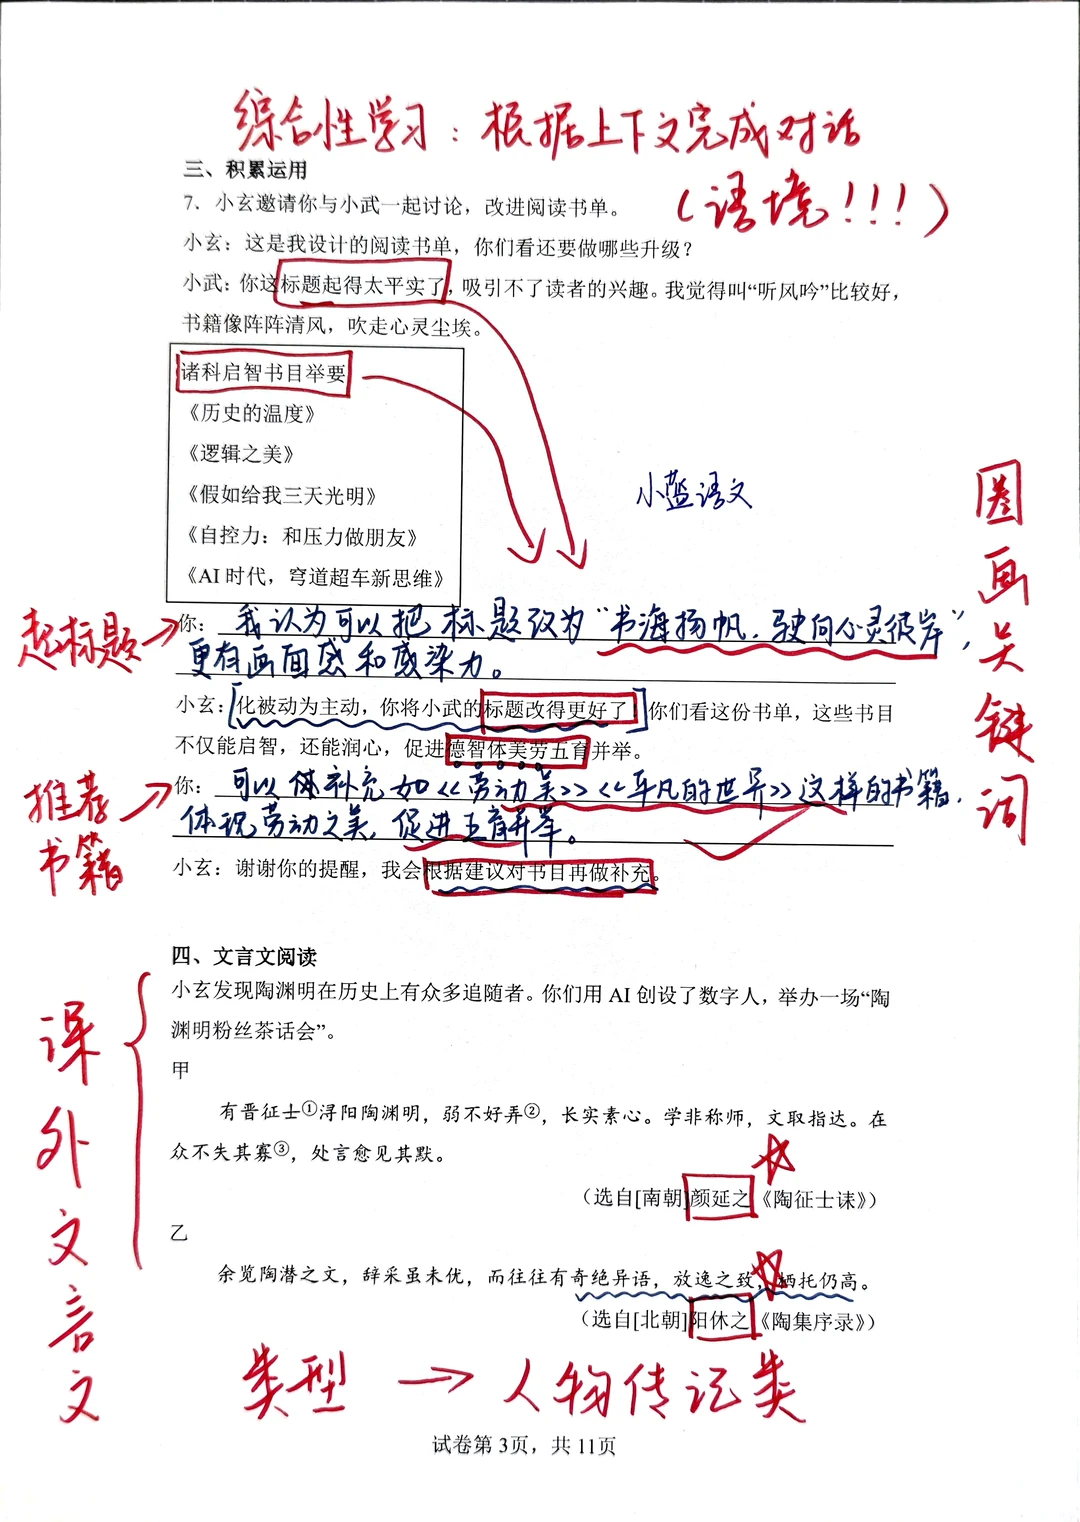 综合性学习：根据上下文完成对话
（语境！！！）
三、积累运用
7．小玄邀请你与小武一起讨论，改进阅读书单。
小玄：这是我设计的阅读书单，你们看还要做哪些升级？
小武：你这标题起得太平实了，吸引不了读者的兴趣。我觉得叫“听风吟”比较好，
书籍像阵阵清风，吹走心灵尘埃。
诸科启智书目举要
《历史的温度》
《逻辑之美》
《假如给我三天光明》
《自控力：和压力做朋友》
《AI 时代，穹道超车新思维》
小蓝语文
圈画关键词
起标题
你：我认为可以把标题改为“书海扬帆，驶向心灵彼岸”，
更有画面感和感染力。
小玄：化被动为主动，你将小武的标题改得更好了！你们看这份书单，这些书目
不仅能启智，还能润心，促进德智体美劳五育并举。
推荐书籍
你：可以体补充如《劳动美》《平凡的世界》这样的书籍，
体现劳动之美，促进五育并举。
小玄：谢谢你的提醒，我会根据建议对书目再做补充。
四、文言文阅读
课外文言文
小玄发现陶渊明在历史上有众多追随者。你们用 AI 创设了数字人，举办一场“陶
渊明粉丝茶话会”。
甲
有晋征士①浔阳陶渊明，弱不好弄②，长实素心。学非称师，文取指达。在
众不失其寡③，处言愈见其默。
（选自[南朝]颜延之《陶征士诔》）
乙
余览陶潜之文，辞采虽未优，而往往有奇绝异语，放逸之致，栖托仍高。
（选自[北朝]阳休之《陶集序录》）
类型 → 人物传记类
试卷第 3页，共 11页